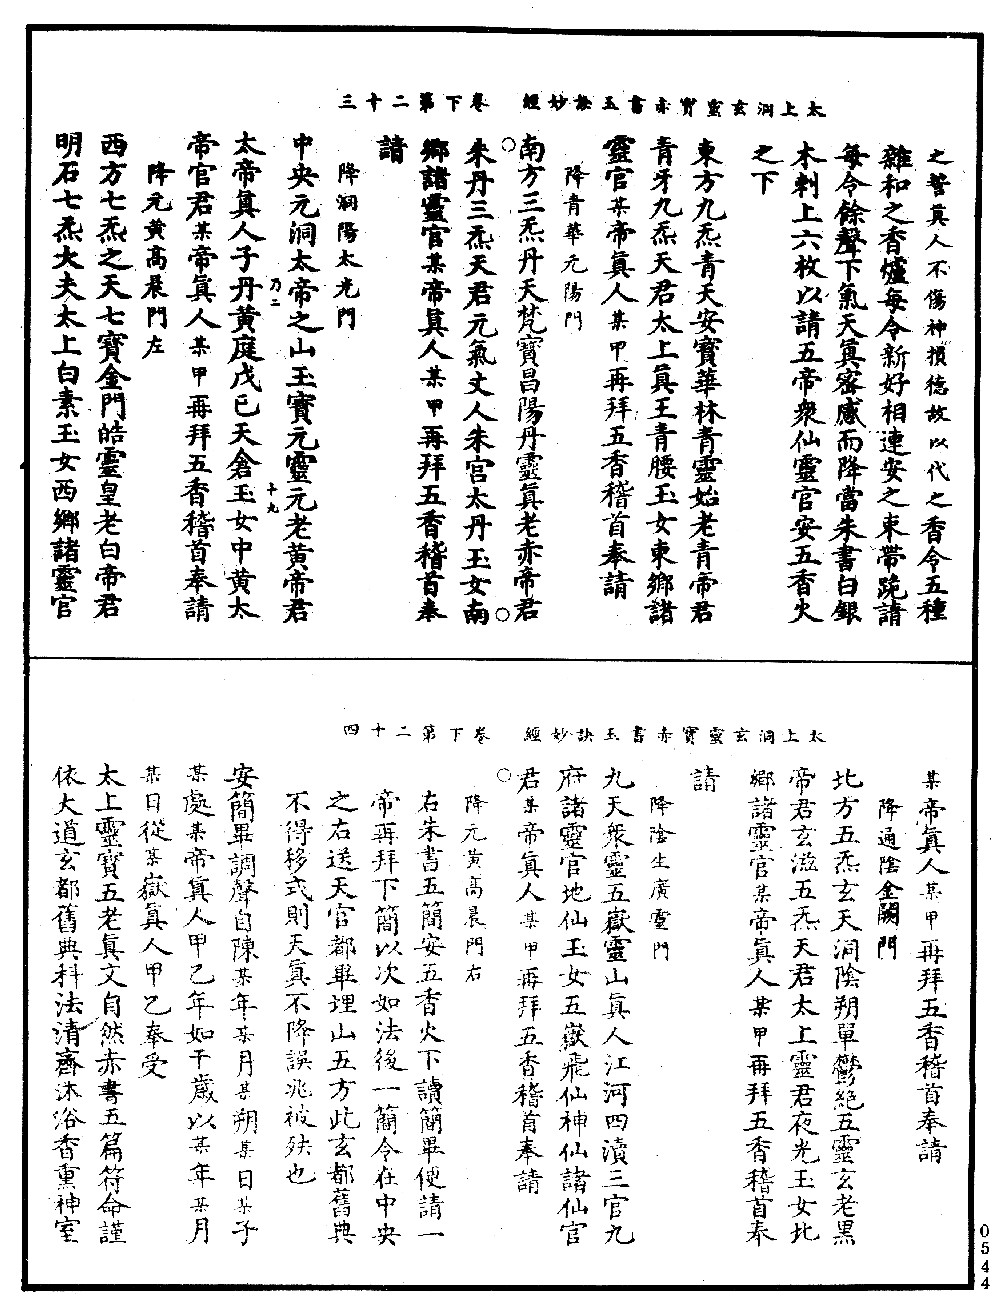 太上洞玄靈寶赤書玉訣妙經　卷下第二十三
之誓真人不傷神損德故以代之香令五種
雜和之香爐每令新好相連安之束帶跪請
每令餘聲下氣天真密感而降當朱書白銀
木刺上六枚以請五帝衆仙靈官安五香火
之下
東方九炁青天安寶華林青靈始老青帝君
青牙九炁天君太上真王青腰玉女東鄉諸
靈官某帝真人某甲再拜五香稽首奉請
降青華元陽門
南方三炁丹天梵寶昌陽丹靈真老赤帝君
朱丹三炁天君元氣丈人朱宮太丹玉女南
鄉諸靈官某帝真人某甲再拜五香稽首奉
請
降洞陽太光門
中央元洞太帝之山玉寶元靈元老黃帝君
乃二
十九
太帝真人子丹黃庭戊己天倉玉女中黃太
帝官君某帝真人某甲再拜五香稽首奉請
降元黃高晨門左
西方七炁之天七寶金門皓靈皇老白帝君
明石七炁大夫太上白素玉女西鄉諸靈官
太上洞玄靈寶赤書玉訣妙經　卷下第二十四
某帝真人某甲再拜五香稽首奉請
降通陰金闕門
北方五炁玄天洞陰朔單鬱絕五靈玄老黑
帝君玄滋五炁天君太上靈君夜光玉女北
鄉諸靈官某帝真人某甲再拜五香稽首奉
請
降陰生廣靈門
九天衆靈五嶽靈山真人江河四瀆三官九
府諸靈官地仙玉女五嶽飛仙神仙諸仙官
君某帝真人某甲再拜五香稽首奉請
降元黃高晨門右
右朱書五簡安五香火下讀簡畢便請一
帝再拜下簡以次如法後一簡令在中央
之右送天官都畢埋山五方此玄都舊典
不得移式則天真不降誤兆被殃也
安簡畢調聲自陳某年某月某朔某日某子
某處某帝真人甲乙年如干歲以某年某月
某日從某嶽真人甲乙奉受
太上靈寶五老真文自然赤書五篇符命謹
依大道玄都舊典科法清齋沐浴香薰神室
0544